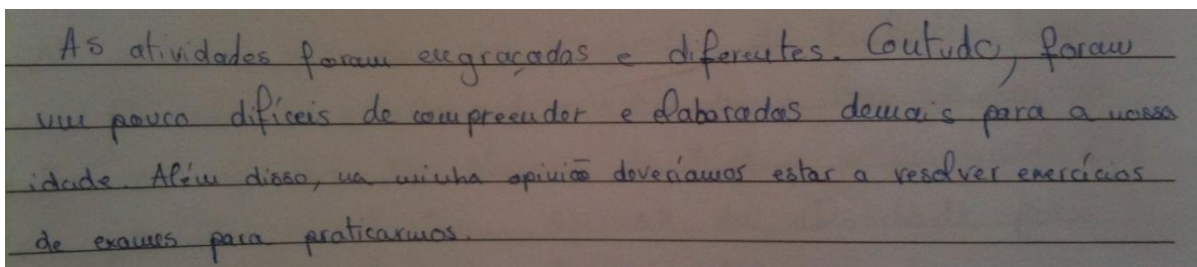 As atividades foram engraçadas e diferentes. Contudo, foram
um pouco difíceis de compreender e elaboradas demais para a nossa
idade. Além disso, na minha opinião deveríamos estar a resolver exercícios
de exames para praticarmos.